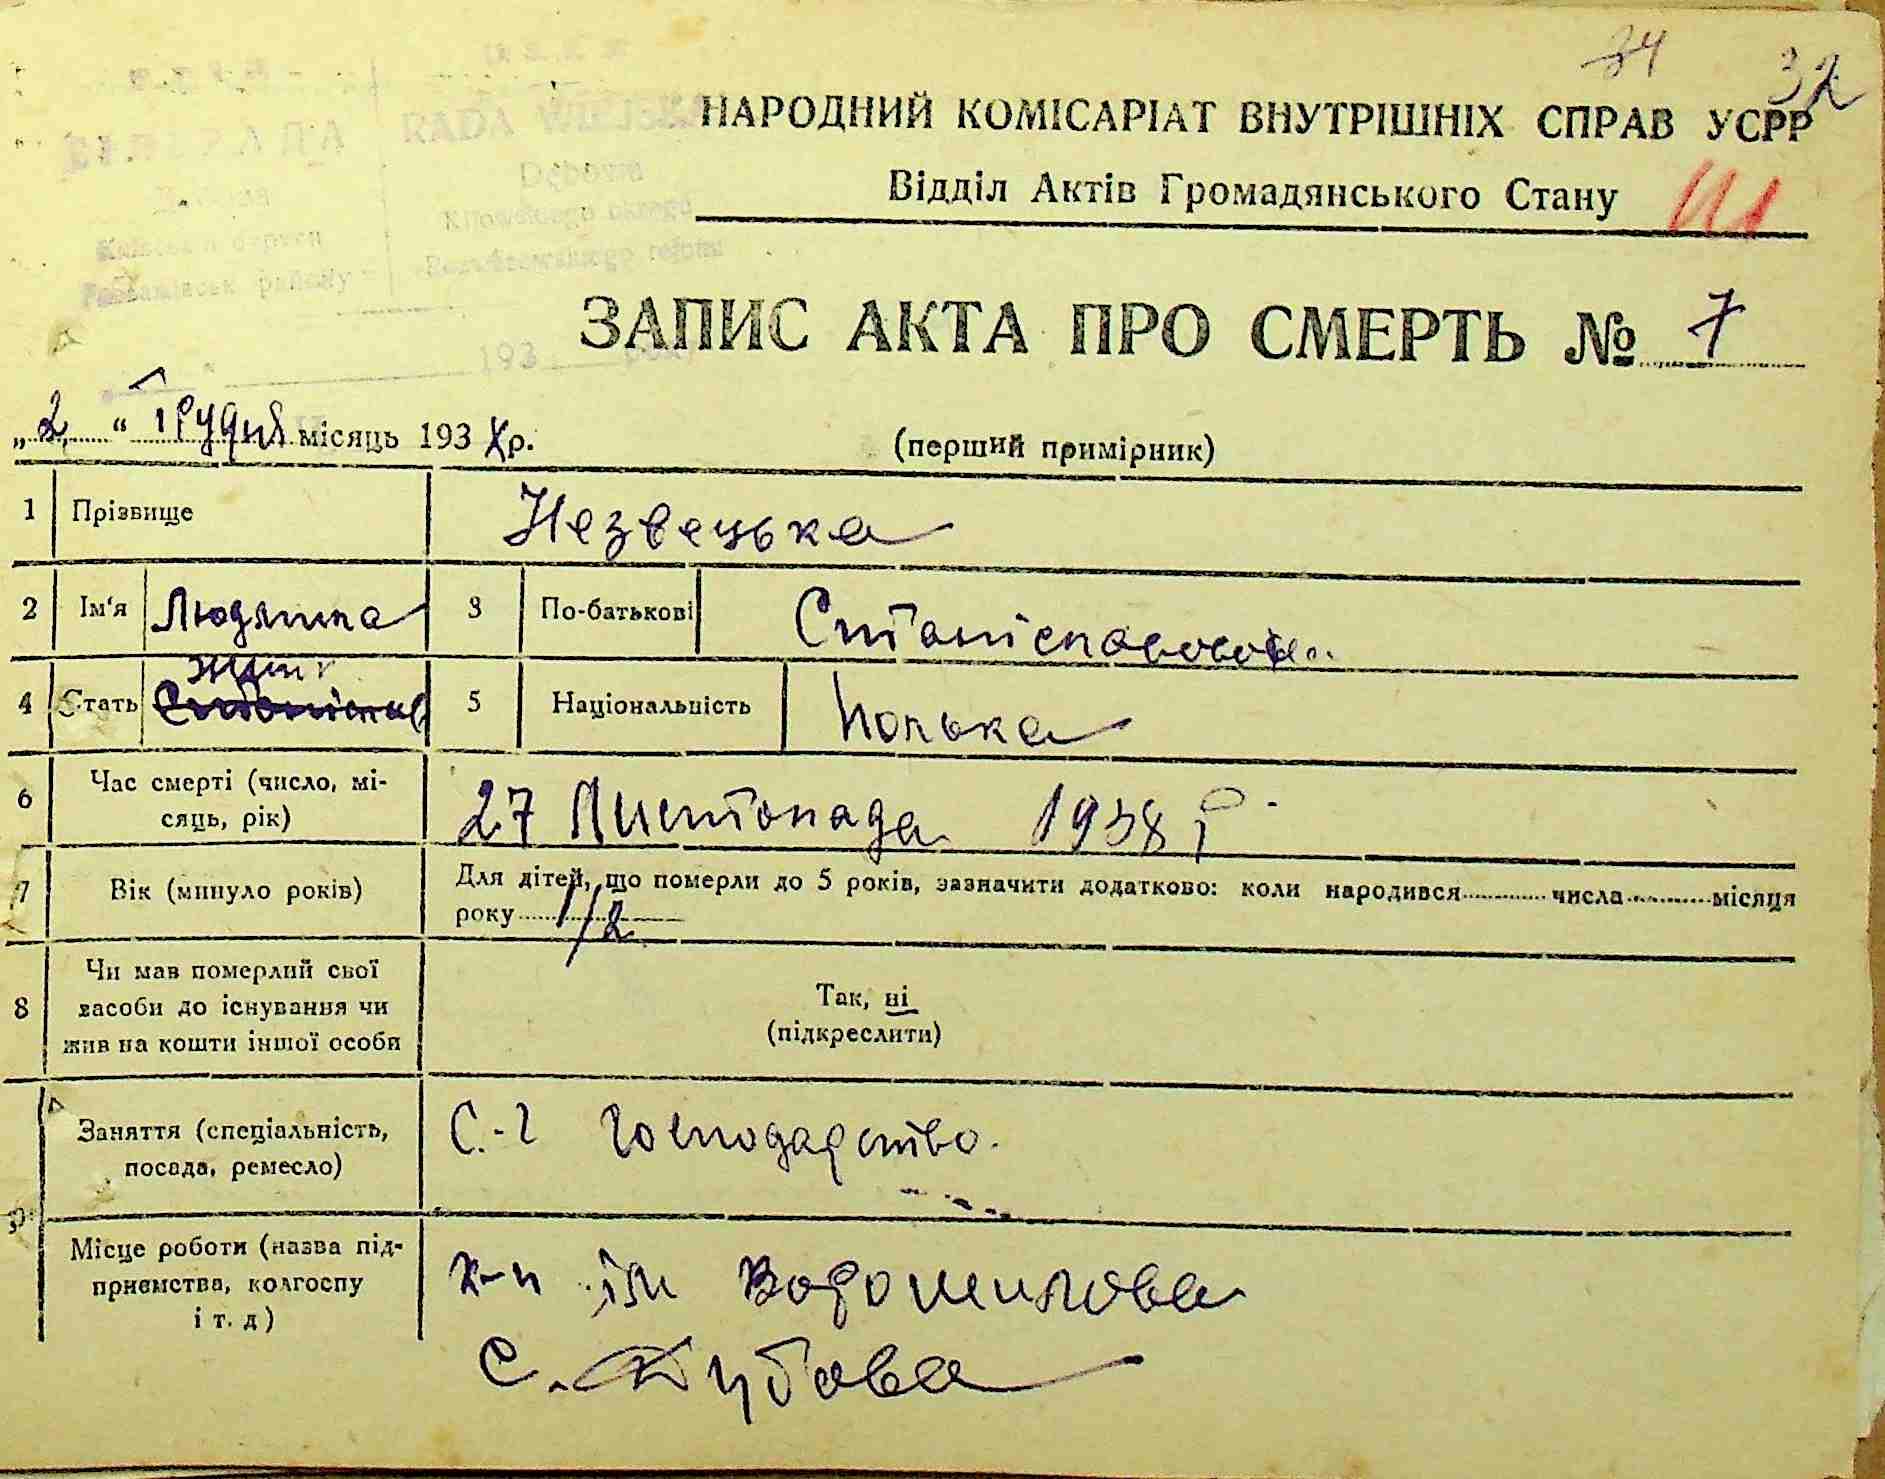 34 32
НАРОДНИЙ КОМІСАРІАТ ВНУТРІШНІХ СПРАВ УСРР
Відділ Актів Громадянського Стану
СІЛЬРАДА RADA WIEJSKA
Київської округи Kijowskiego okręgu
району rejonu
193 року
ЗАПИС АКТА ПРО СМЕРТЬ № 7
„2“ Грудня місяць 193 р.
(перший примірник)
1 Прізвище Незвецька
2 Ім'я Людмила 3 По-батькові Станіславовна
4 Стать жіни 5 Національність Полька
6 Час смерті (число, мі-
сяць, рік) 27 Листопада 1938 р.
7 Вік (минуло років) Для дітей, що померли до 5 років, зазначити додатково: коли народився числа місяця
року 1/2
8 Чи мав померлий свої
засоби до існування чи
жив на кошти іншої особи
Так, ні
(підкреслити)
9 Заняття (спеціальність,
посада, ремесло) С.-г господарство.
Місце роботи (назва під-
приємства, колгоспу
і т. д) к-п ім Ворошилова
с. Дубова